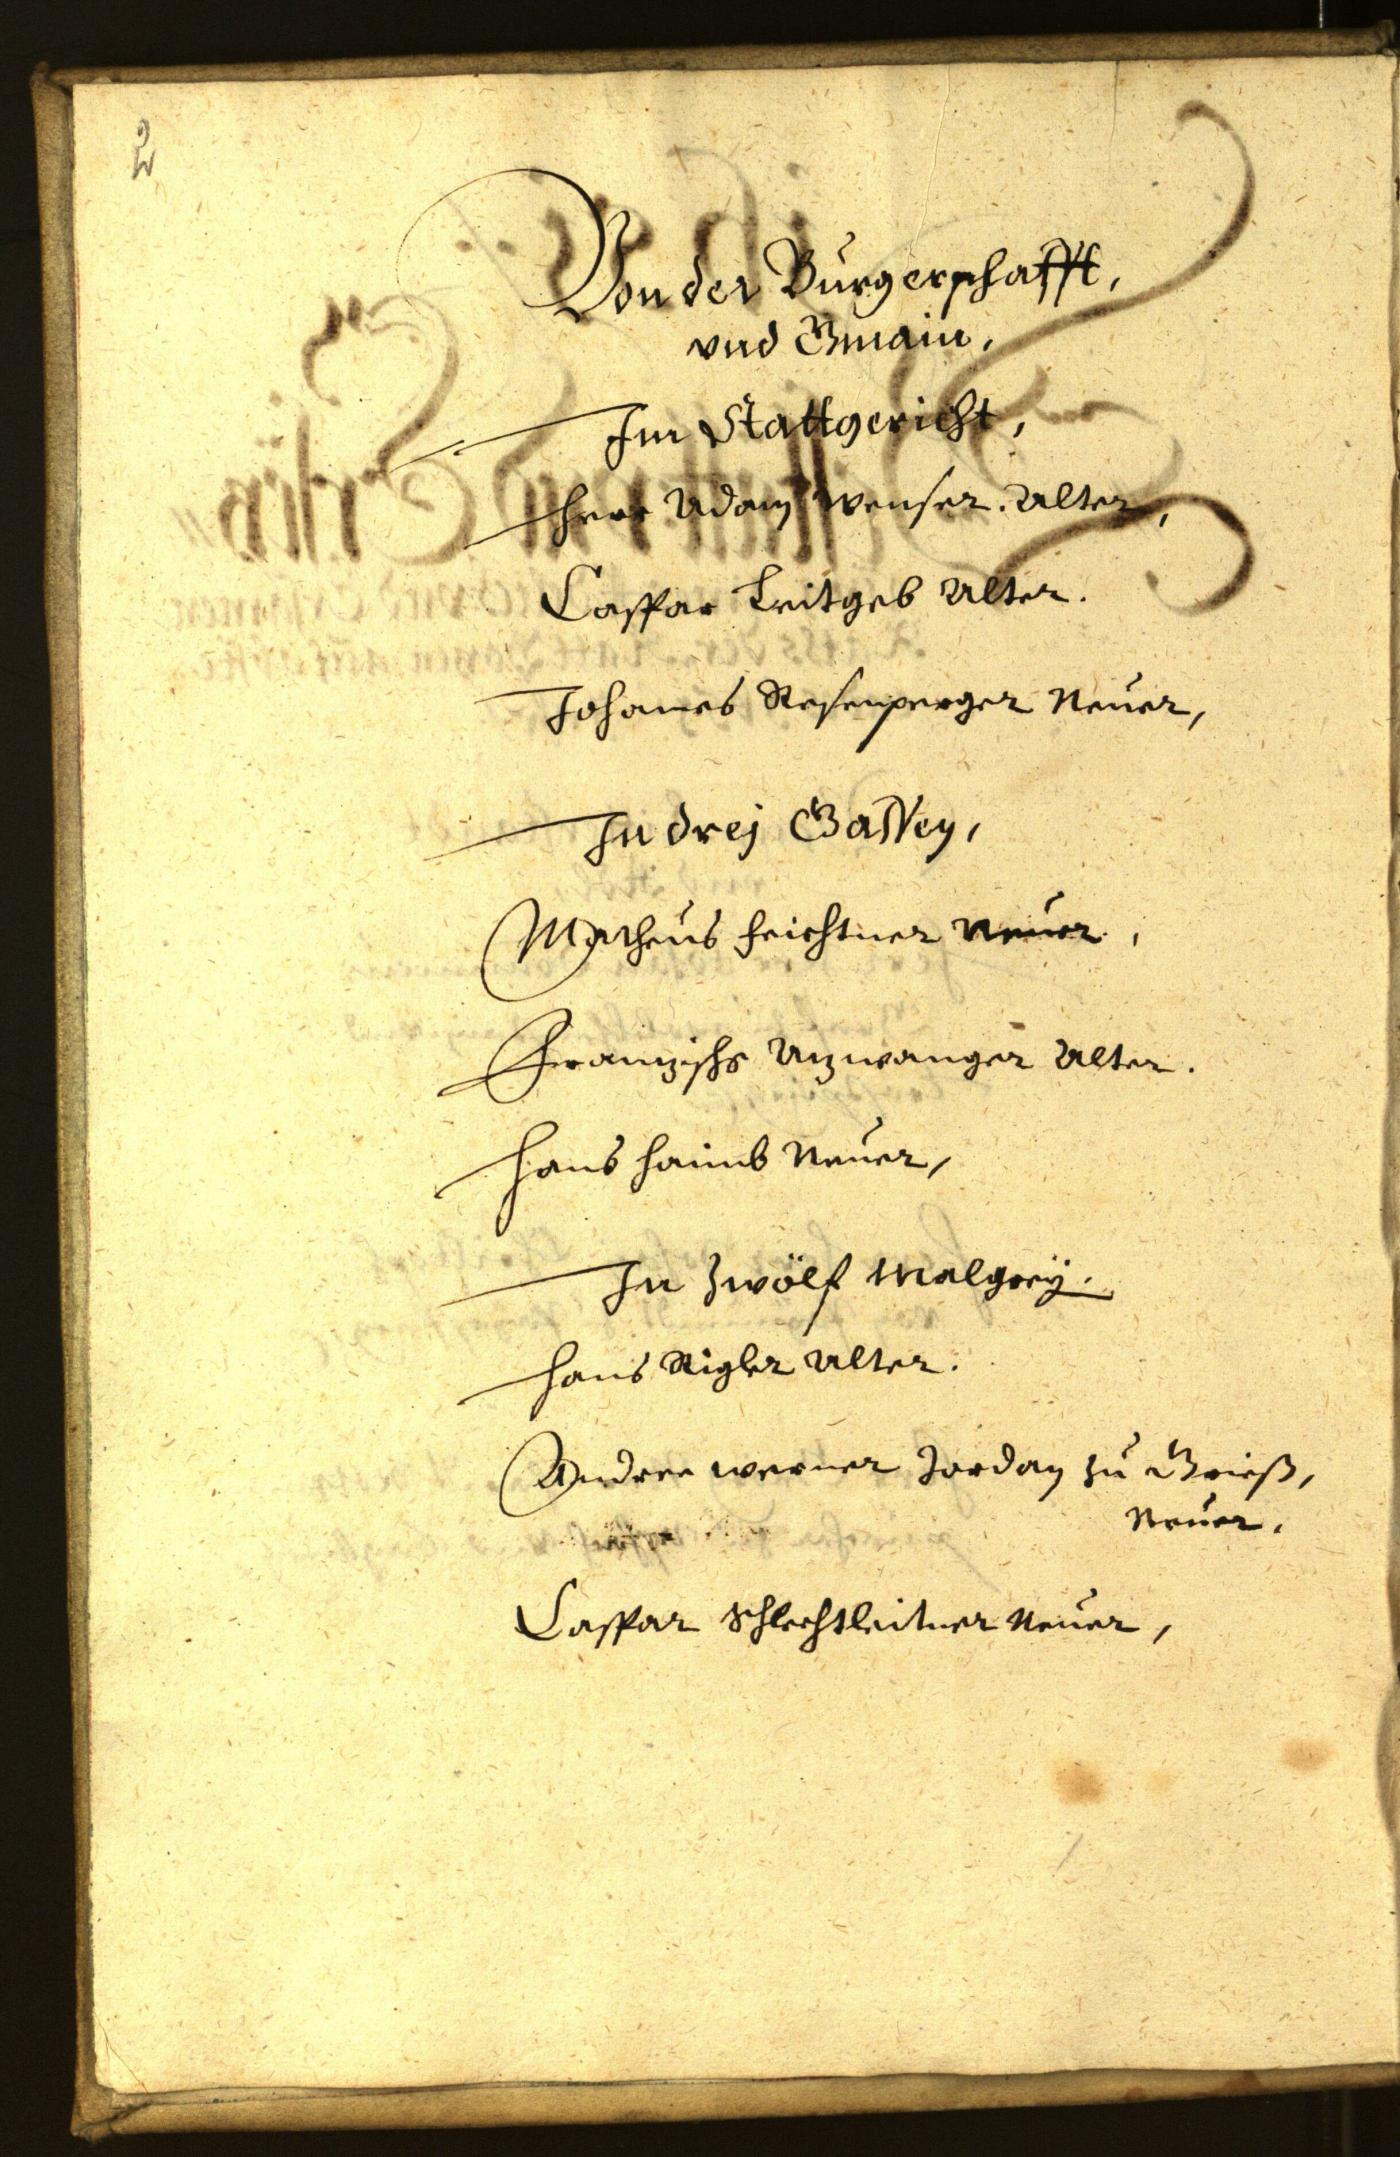 2
Von der Burgerschafft,
vnd Gmain,
Im Stattgericht,
Herr Adam Wenser Alter,
Caspar Leitgeb Alter.
Johannes Resenperger Neuer,
In drej Gassen,
Matheus Feichtner Neuer,
Franzischg Azwanger Alter.
Hans Haimb Neuer,
In Zwölf Malgreÿ.
Hans Rigler Alter.
Andree Werner Jordan zu Grieß,
Neuer.
Caspar Schlechtleitner Neuer,